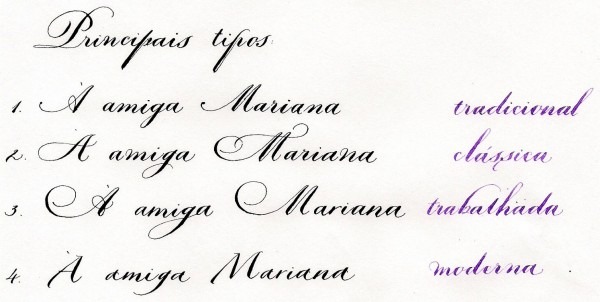 Principais tipos:
1. À amiga Mariana tradicional
2. À amiga Mariana clássica
3. À amiga Mariana trabalhada
4. À amiga Mariana moderna